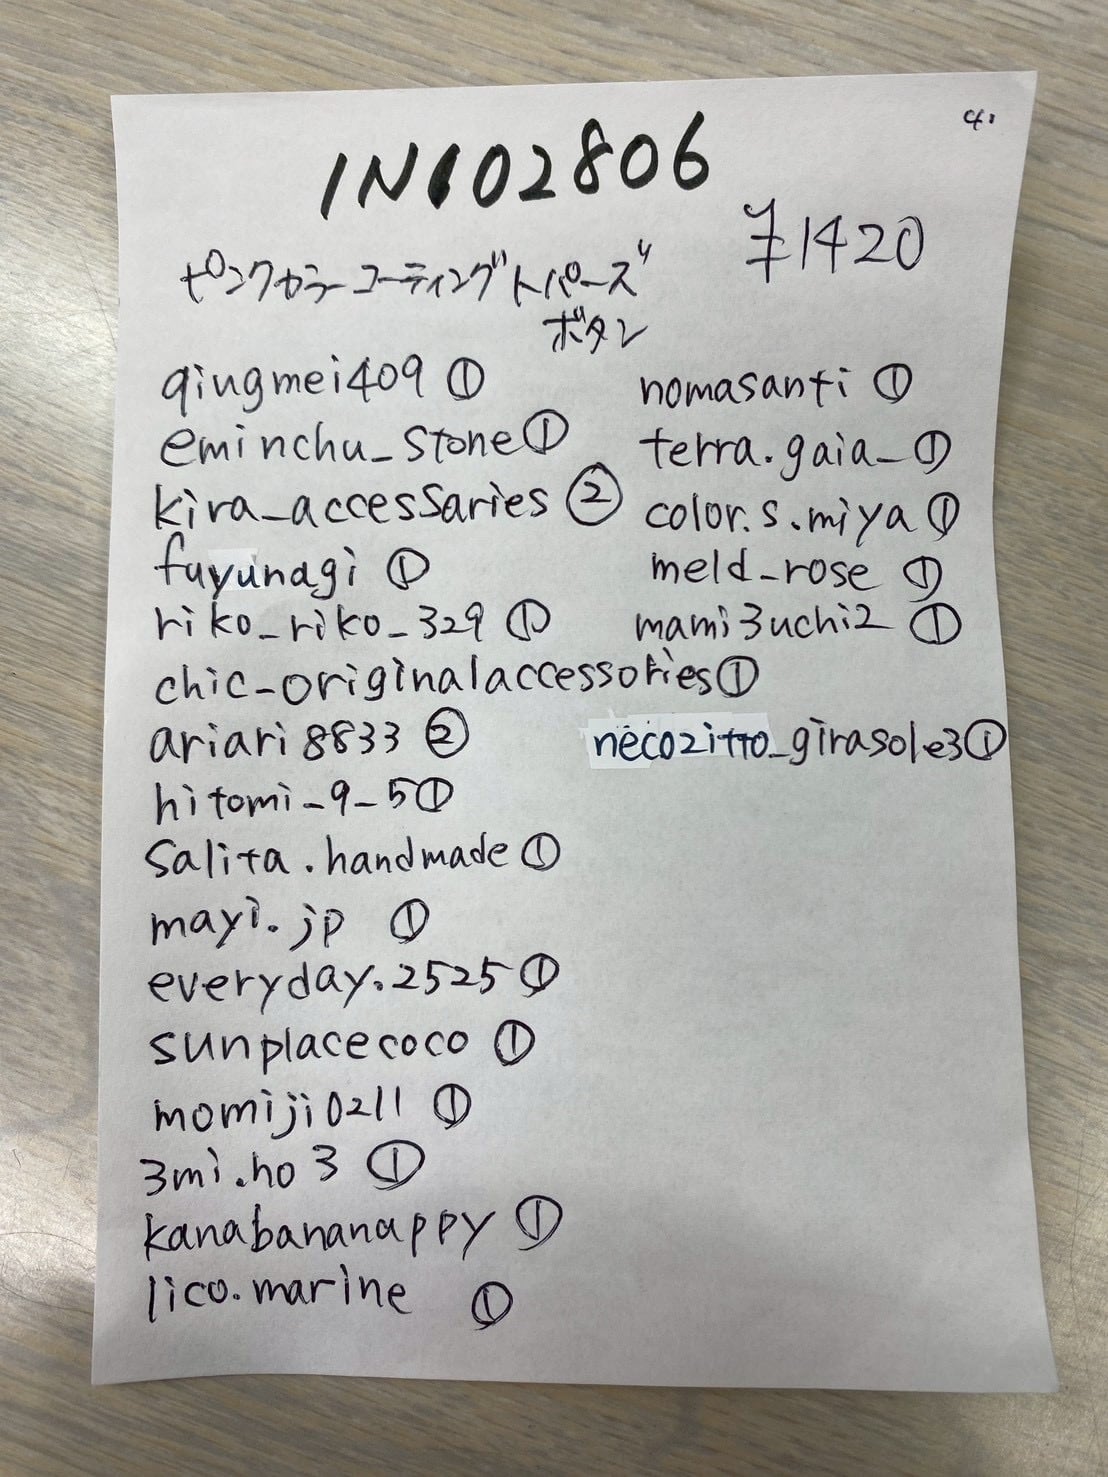 IN102806
¥1420
ピンクカラーコーティングトパーズ
ボタン
qingmei409 ①
eminchu_stone ①
kira_accessaries ②
fuyunagi ①
riko_riko_329 ①
chic_originalaccessories ①
ariari8833 ②
hitomi_9_5 ①
salita.handmade ①
mayi.jp ①
everyday.2525 ①
sunplacecoco ①
momiji0211 ①
3mi.ho3 ①
kanabananappy ①
lico.marine ①
nomasanti ①
terra.gaia_ ①
color.s.miya ①
meld_rose ①
mami3uchi2 ①
necozitto_girasole3 ①